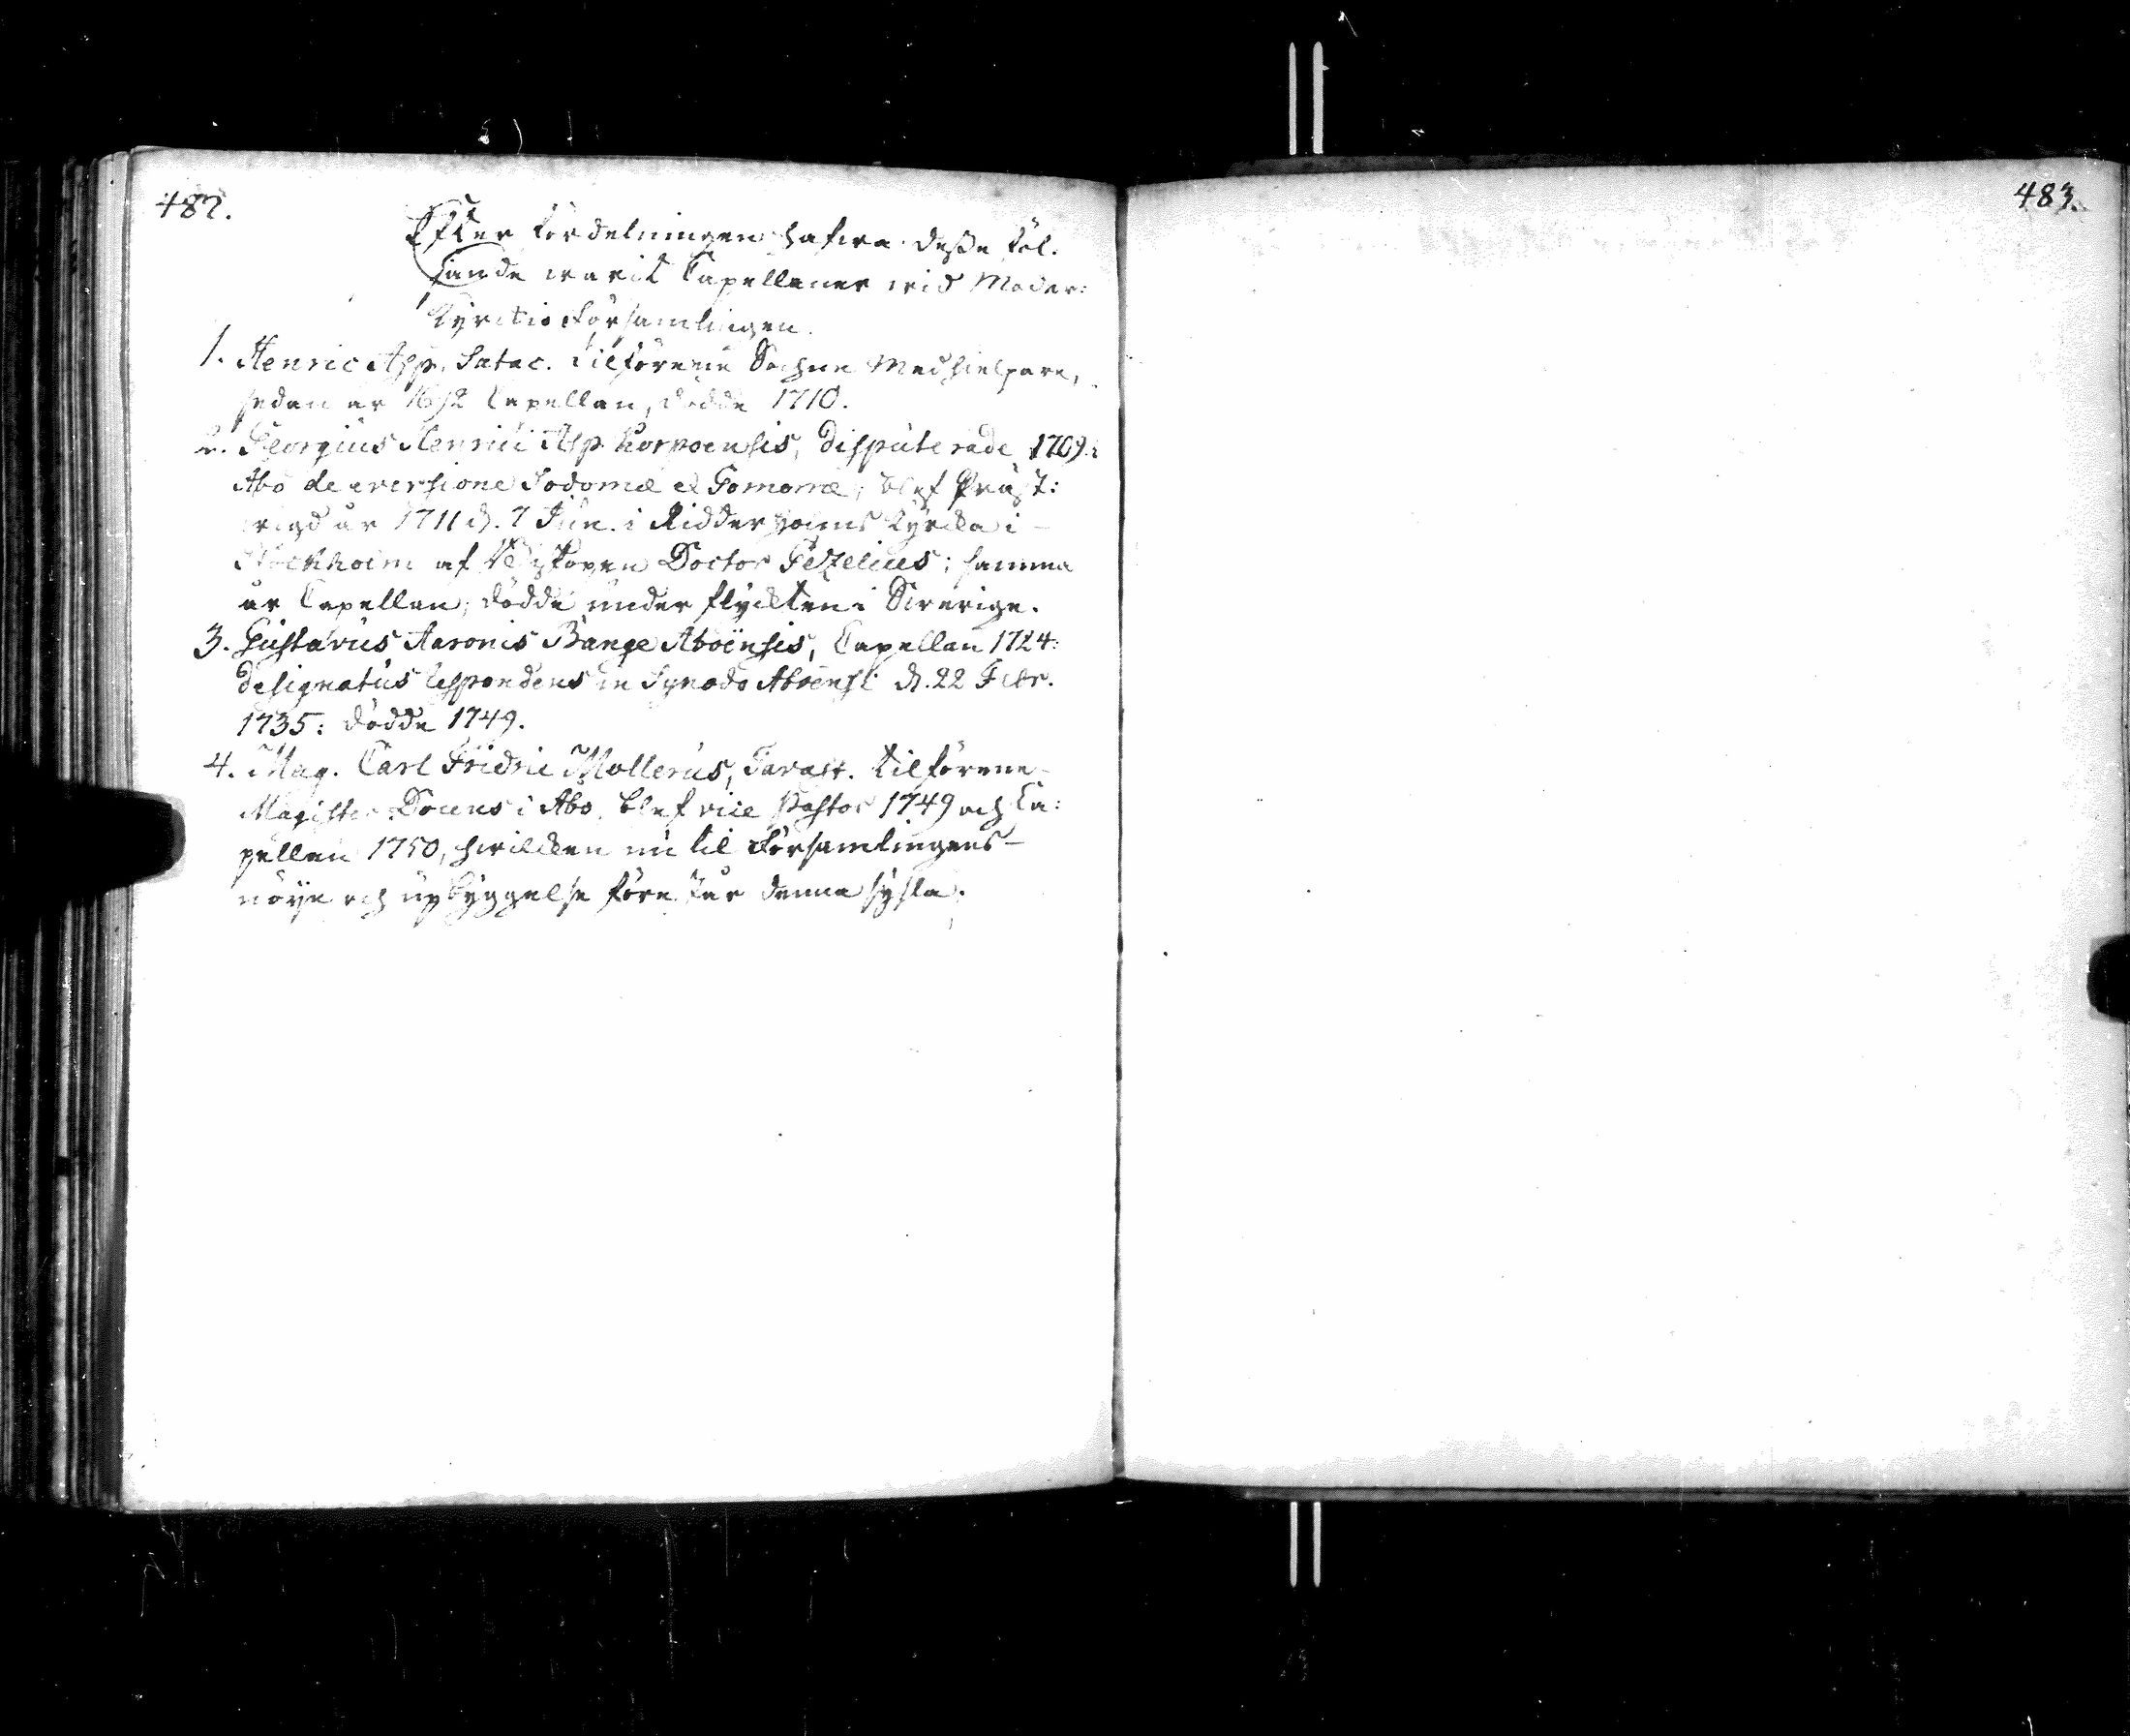 482.
Efter fördelningen hafwa desse föl:
jande warit Capellaner wid Moder:
Kyrckio Församlingen.
1. Henric Asp. Satac. tilförene Sochne Medhielpare,
sedan år 1692 Capellan, dödde 1710.
2. Georgius Henrici Asp Korpoensis, disputerade 1709 i
Åbo de eversione Sodomæ et Gomorræ, blef Präst:
wigd år 1711 d. 7 Jun. i Ridderholms Kyrcka i
Stockholm af Biskopen Doctor Gezelius; samma
år Capellan; dödde under flyckten i Swerige.
3. Gustavus Aaronis Bange Aboënsis, Capellan 1724:
designatus respondens in Synodo Aboensi d. 22 Febr.
1735: dödde 1749.
4. Mag. Carl Fridric Mollerus, Tavast. tilförene
Magister Docens i Åbo, blef vice Pastor 1749 och Ca:
pellan 1750, hwilcken nu til Församlingens
nöije och upbyggelse förestår denna sysla.
483.